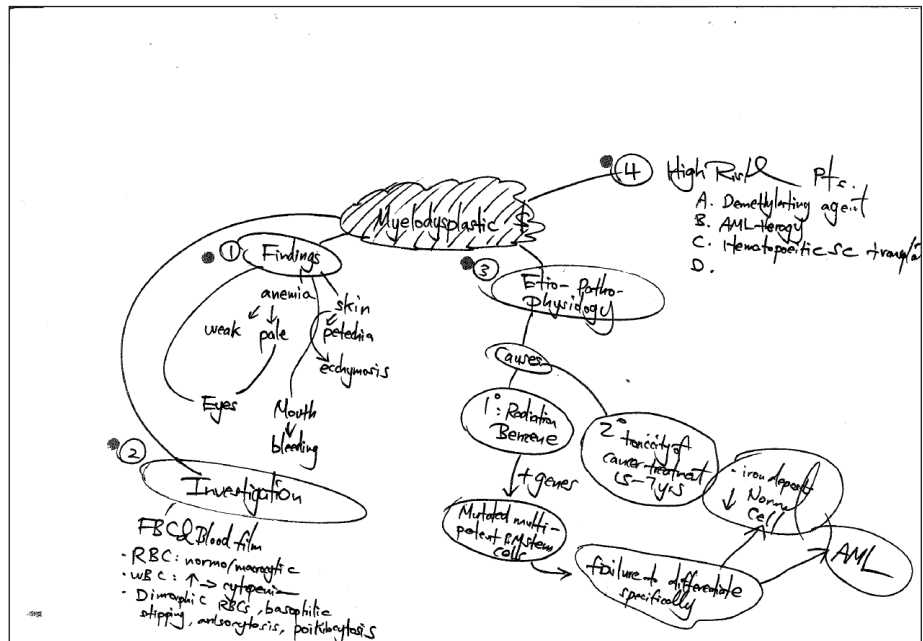 Myelodysplastic $
① Findings
anemia
weak
pale
Eyes
skin
petechia
ecchymosis
Mouth
bleeding
② Investigation
FBC & Blood film
· RBC: normo/macrocytic
· WBC: ↑ → cytopenia
· Dimorphic RBCs, basophilic
stipping, anisocytosis, poikilocytosis
③ Etio-Patho-
physiology
Causes
1°: Radiation
Benzene
+ genes
Mutated multi-
potent BM stem
cells
2° toxicity of
cancer treatment
(5-7yrs
failure to differediate
specifically
· iron deposit
↓ Normal
Cell
AML
④ High Risk Pts.
A. Demethylating agent
B. AML-therapy
C. Hematopoeitic SC transpla
D.